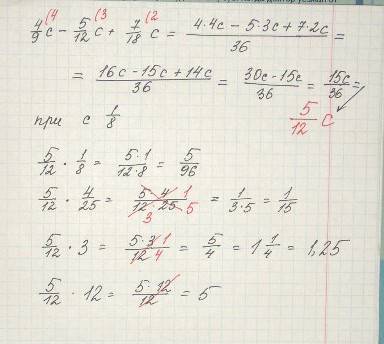 4/9 (4 c - 5/12 (3 c + 7/18 (2 c = (4·4c - 5·3c + 7·2c)/36 =
= (16c - 15c + 14c)/36 = (30c - 15c)/36 = 15c/36 =
5/12 c
при c 1/8
5/12 · 1/8 = 5·1/12·8 = 5/96
5/12 · 4/25 = 5·4 1/12·25 3 5 = 1/3·5 = 1/15
5/12 · 3 = 5·3 1/12 4 = 5/4 = 1 1/4 = 1,25
5/12 · 12 = 5·12/12 = 5